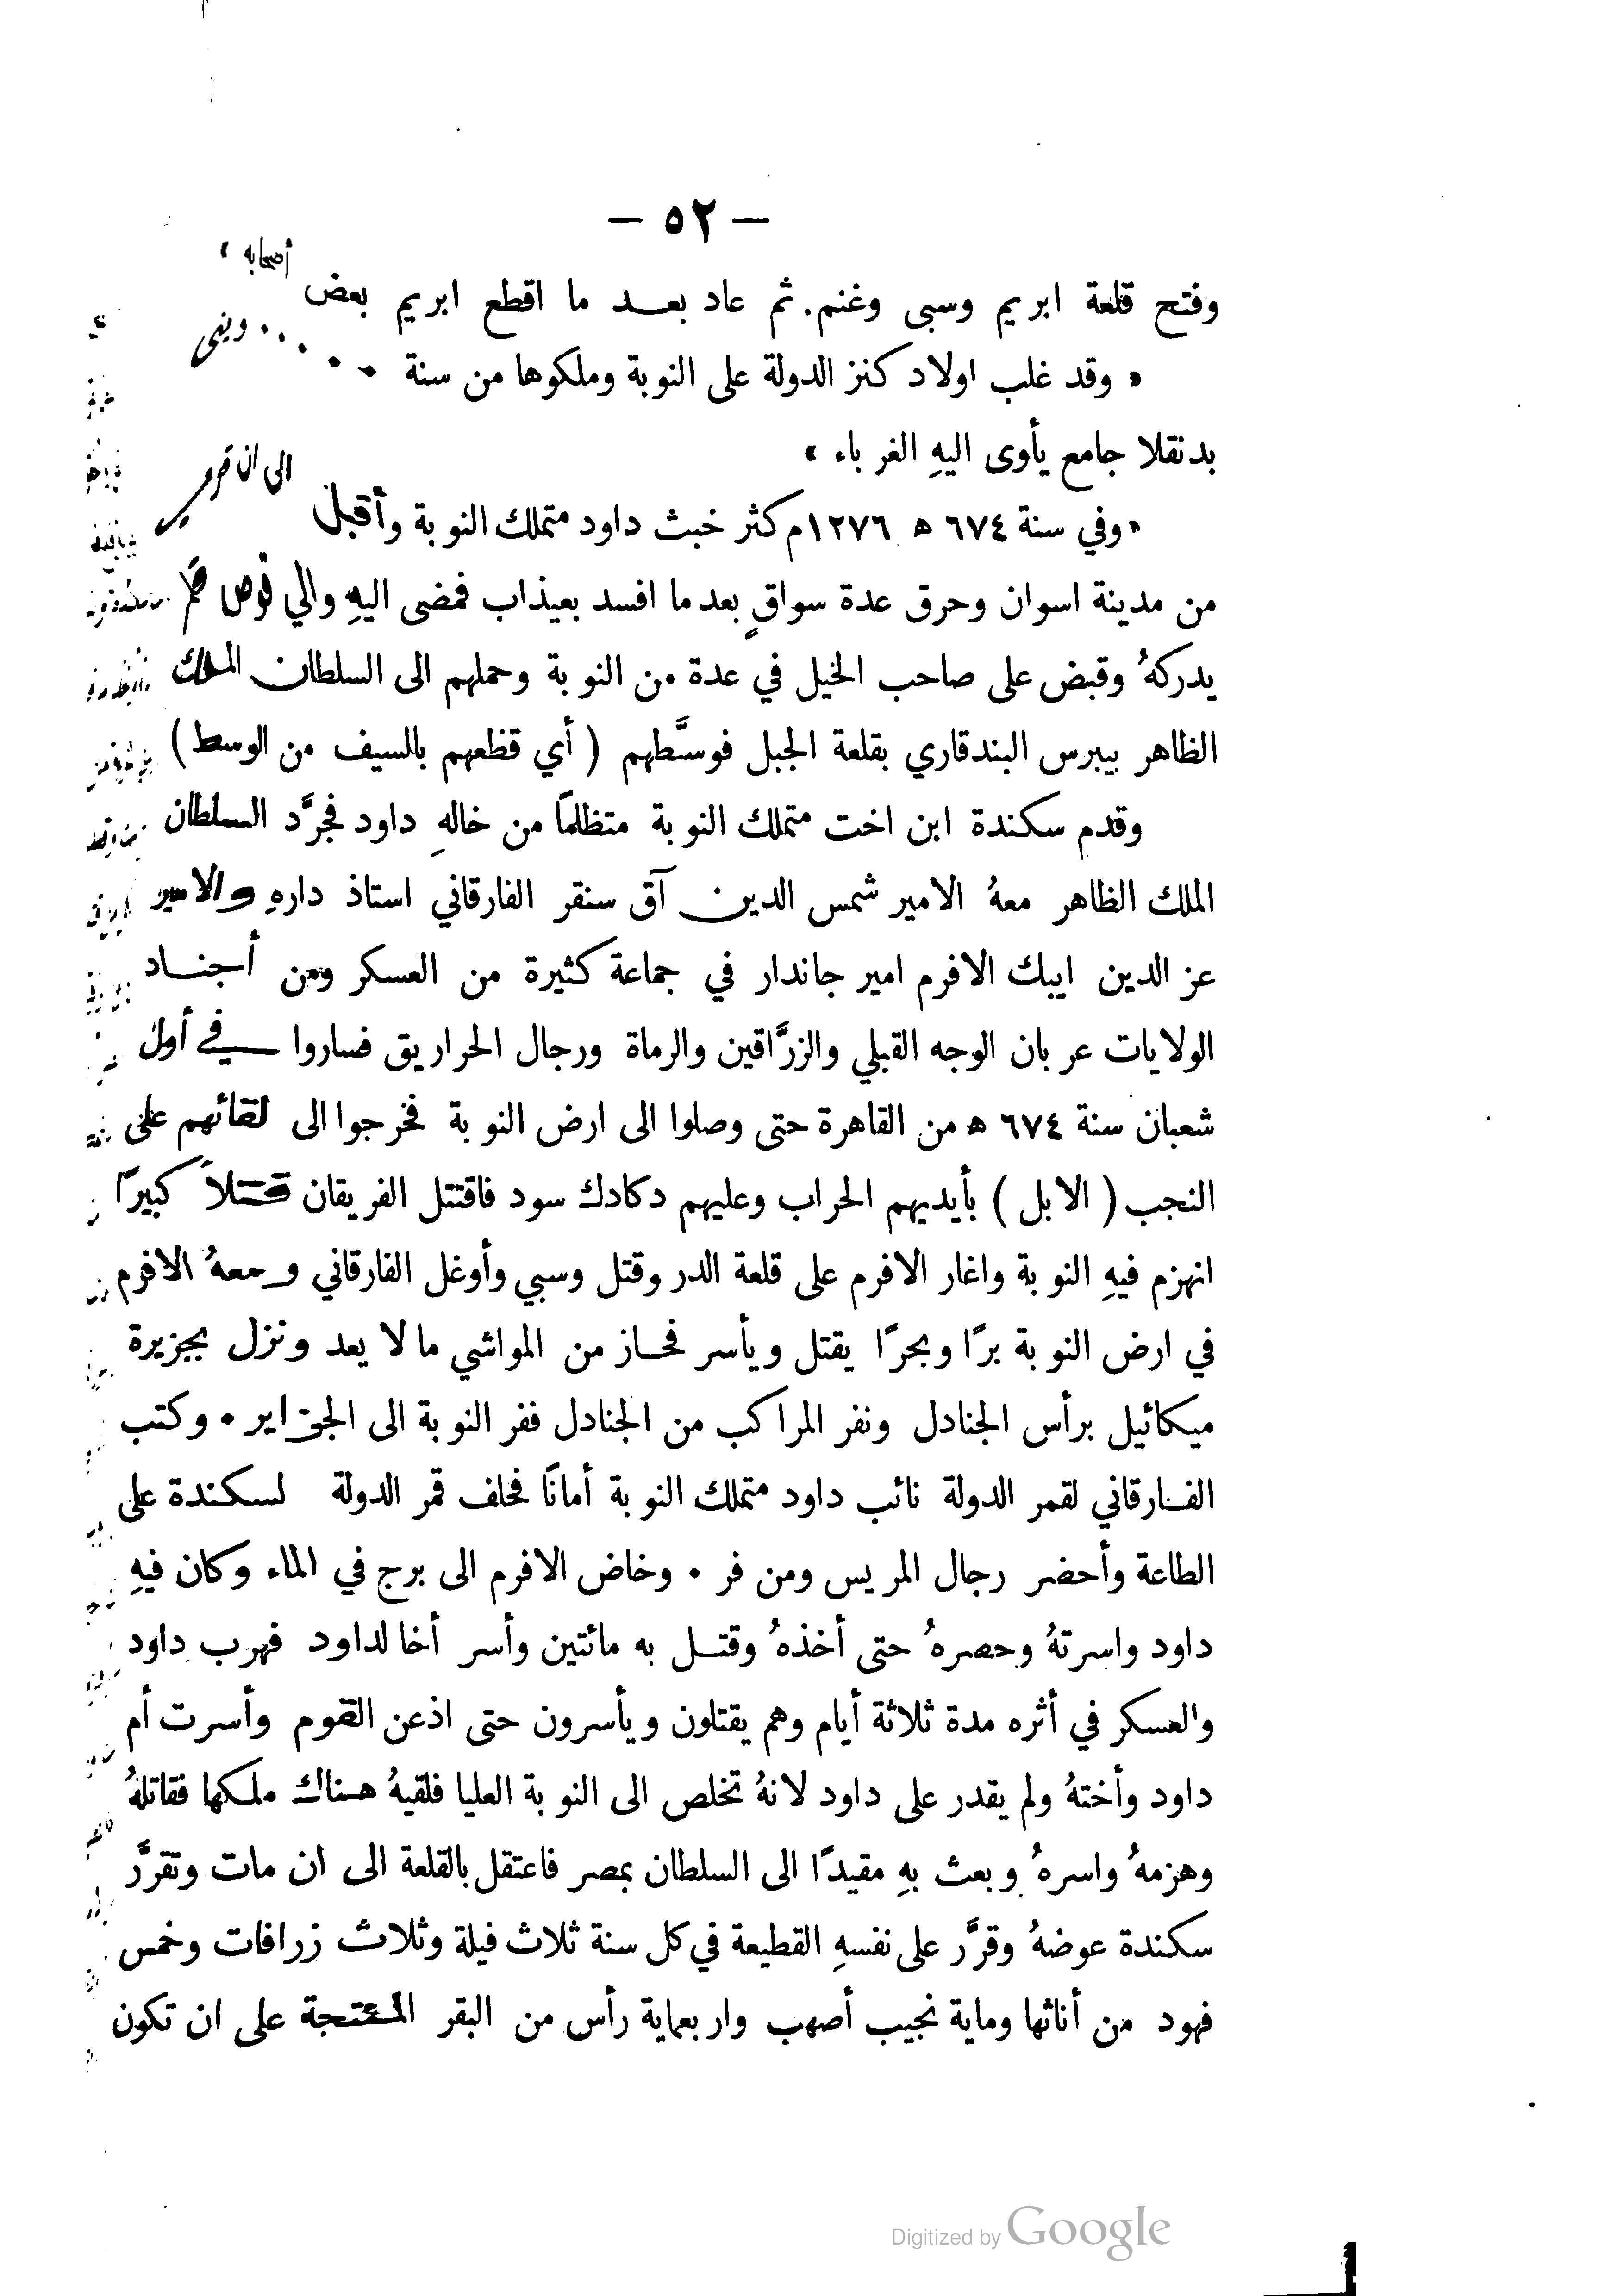 — ٥٢ —
وفتح قلعة ابريم وسبى وغنم. ثم عاد بعد ما اقطع ابريم بعض أصحابه »
« وقد غلب اولاد كنز الدولة على النوبة وملكوها من سنة ..... وبنى
بدنقلا جامع يأوى اليهِ الغرباء »
« وفي سنة ٦٧٤ ه ١٢٧٦م كثر خبث داود متملك النوبة وأقبل الى ان قرب
من مدينة اسوان وحرق عدة سواقٍ بعد ما افسد بعيذاب فمضى اليهِ والي قوص فلم
يدركهُ وقبض على صاحب الخيل في عدة من النوبة وحملهم الى السلطان الملك
الظاهر بيبرس البندقاري بقلعة الجبل فوسَّطهم ( أي قظعهم بالسيف من الوسط )
وقدم سكندة ابن اخت متملك النوبة متظلمًا من خالهِ داود فجرَّد السلطان
الملك الظاهر معهُ الامير شمس الدين آق سنقر الفارقاني استاذ دارهِ والامير
عز الدين ايبك الافرم امير جاندار في جماعة كثيرة من العسكر ومن أجناد
الولايات عربان الوجه القبلي والزرَّاقين والرماة ورجال الحراريق فساروا في أول
شعبان سنة ٦٧٤ ه من القاهرة حتى وصلوا الى ارض النوبة فخرجوا الى لقائهم على
النجب ( الابل ) بأيديهم الحراب وعليهم دكادك سود فاقتتل الفريقان قتلاً كبيرًا
انهزم فيهِ النوبة واغار الافرم على قلعة الدر وقتل وسبي وأوغل الفارقاني ومعهُ الافرم
في ارض النوبة برًا وبحرًا يقتل ويأسر فحاز من المواشي ما لا يعد ونزل بجزيرة
ميكائيل برأس الجنادل ونفر المراكب من الجنادل ففر النوبة الى الجزاير . وكتب
الفارقاني لقمر الدولة نائب داود متملك النوبة أمانًا فحلف قمر الدولة لسكندة على
الطاعة وأحضر رجال المريس ومن فر . وخاض الافرم الى برج في الماء وكان فيهِ
داود واسرتهُ وحصرهُ حتى أخذهُ وقتل به مائتين وأسر أخا لداود فهرب داود
والعسكر في أثره مدة ثلاثة أيام وهم يقتلون ويأسرون حتى اذعن القوم وأسرت أم
داود وأختهُ ولم يقدر على داود لانهُ تخلص الى النوبة العليا فلقيهُ هناك ملكها فقاتلهُ
وهزمهُ واسرهُ وبعث بهِ مقيدًا الى السلطان بمصر فاعتقل بالقلعة الى ان مات وتقرَّر
سكندة عوضهُ وقرَّر على نفسهِ القطيعة في كل سنة ثلاث فيلة وثلاث زرافات وخمس
فهود من أناثها وماية نجيب أصهب واربعماية رأس من البقر المنتجة على ان تكون
Digitized by Google